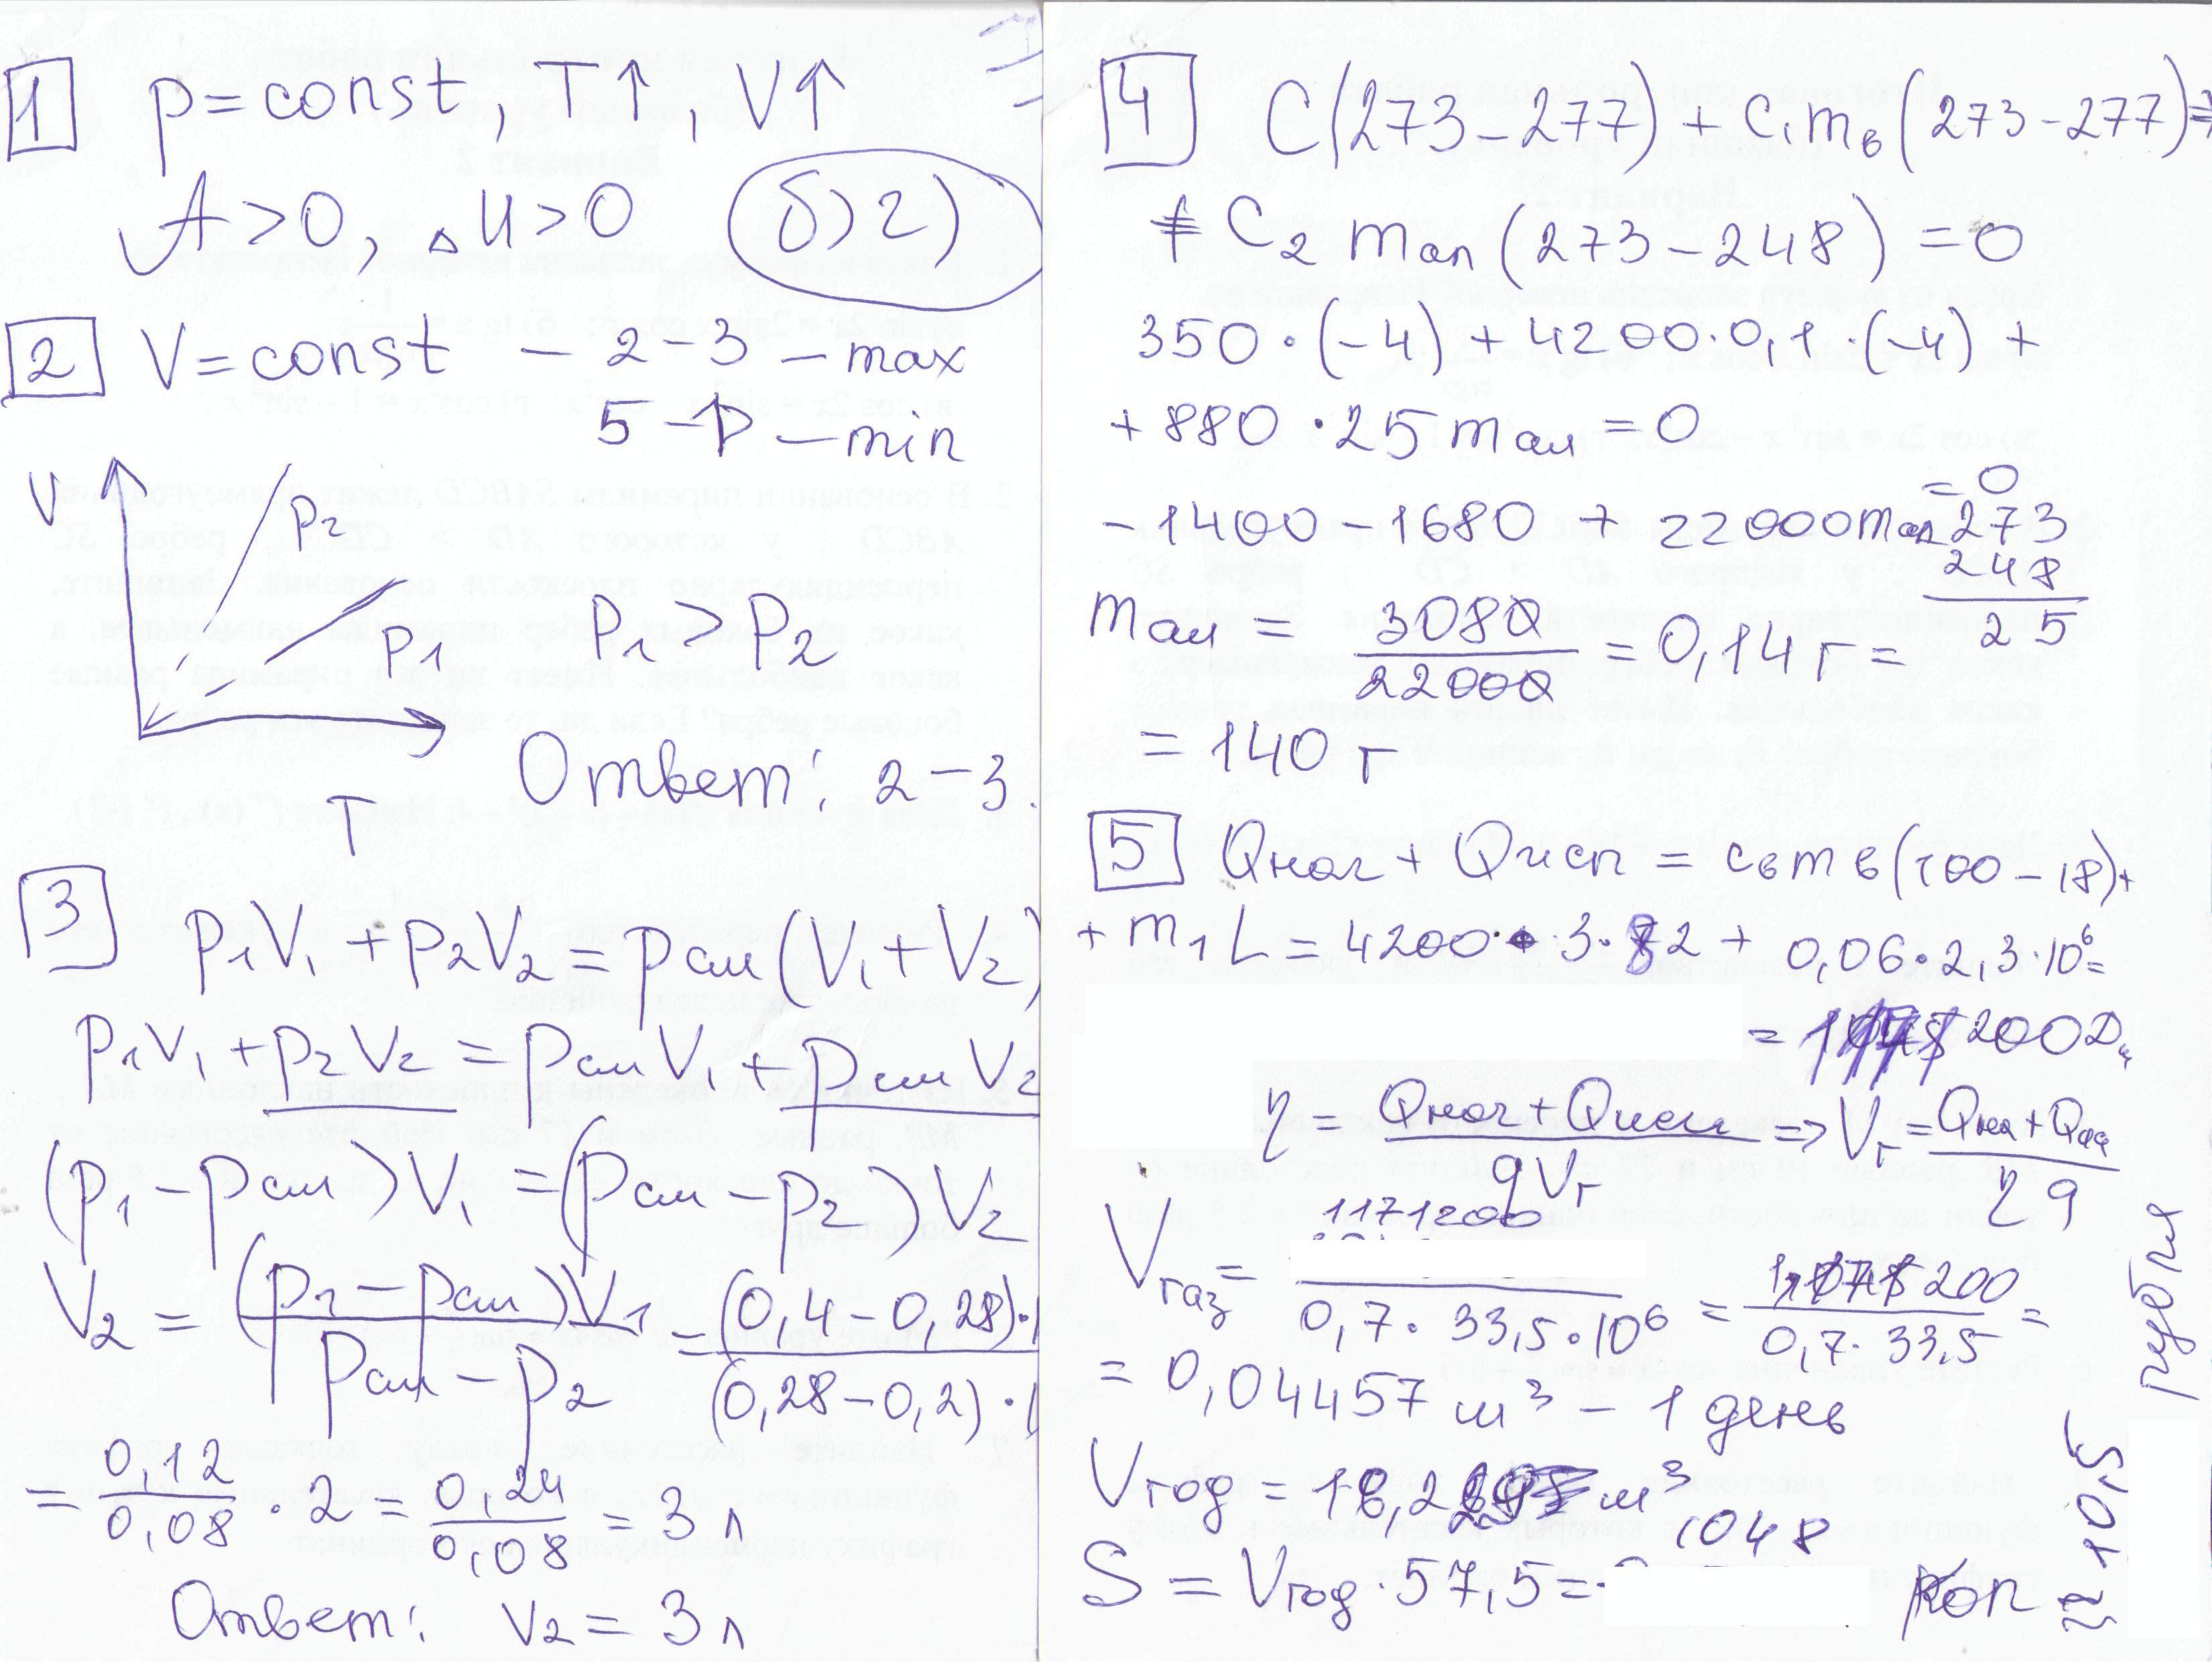 1 p = const, T↑, V↑
A > 0, △U > 0 б) г)
2 V = const – 2 – 3 – max
5 – p – min
V
p₂
p₁
p₁ > p₂
T
Ответ: 2 – 3.
3 p₁V₁ + p₂V₂ = pсм(V₁ + V₂)
p₁V₁ + p₂V₂ = pсмV₁ + pсмV₂
(p₁ – pсм)V₁ = (pсм – p₂)V₂
V₂ = (p₁ – pсм)V₁ / (pсм – p₂) = (0,4 – 0,28)· / (0,28 – 0,2)·
= 0,12 / 0,08 · 2 = 0,24 / 0,08 = 3 л
Ответ: V₂ = 3 л
4 C(273 – 277) + C₁mв(273 – 277) +
+ C₂ mал(273 – 248) = 0
350 · (–4) + 4200 · 0,1 · (–4) +
+ 880 · 25 mал = 0
– 1400 – 1680 + 22000 mал = 0
273
248
25
mал = 3080 / 22000 = 0,14 г =
= 140 г
5 Qнаг + Qисп = cвmв(100 – 18) +
+ m₁L = 4200 · 3 · 82 + 0,06 · 2,3 · 10⁶ =
= 200 Дж
η = Qнаг + Qисп / qVг ⇒ Vг = Qнаг + Qисп / ηq
Vгаз = 1171200 / 0,7 · 33,5 · 10⁶ = 200 / 0,7 · 33,5 =
= 0,04457 м³ – 1 день
Vгод = 16,2 м³
S = Vгод · 57,5 = 1048 коп
≈ 10,5 рубля